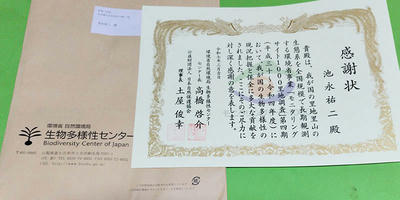 感謝状
池永祐二殿
貴殿は、我が国の里地里山の
生態系を全国規模で長期観測
する環境省事業「モニタリング
サイト1000里地調査」第四期
(平成三十~令和四年度)に
おいて、我が国の生物多様性の
現況把握と保全に多大な貢献を
されました。ここにそのご尽力に
対し深く感謝の意を表します。
環境省自然環境局 生物多様性センター
センター長 高橋啓介
公益財団法人 日本自然保護協会
理事長 土屋俊幸
環境省 自然環境局
生物多様性センター
Biodiversity Center of Japan